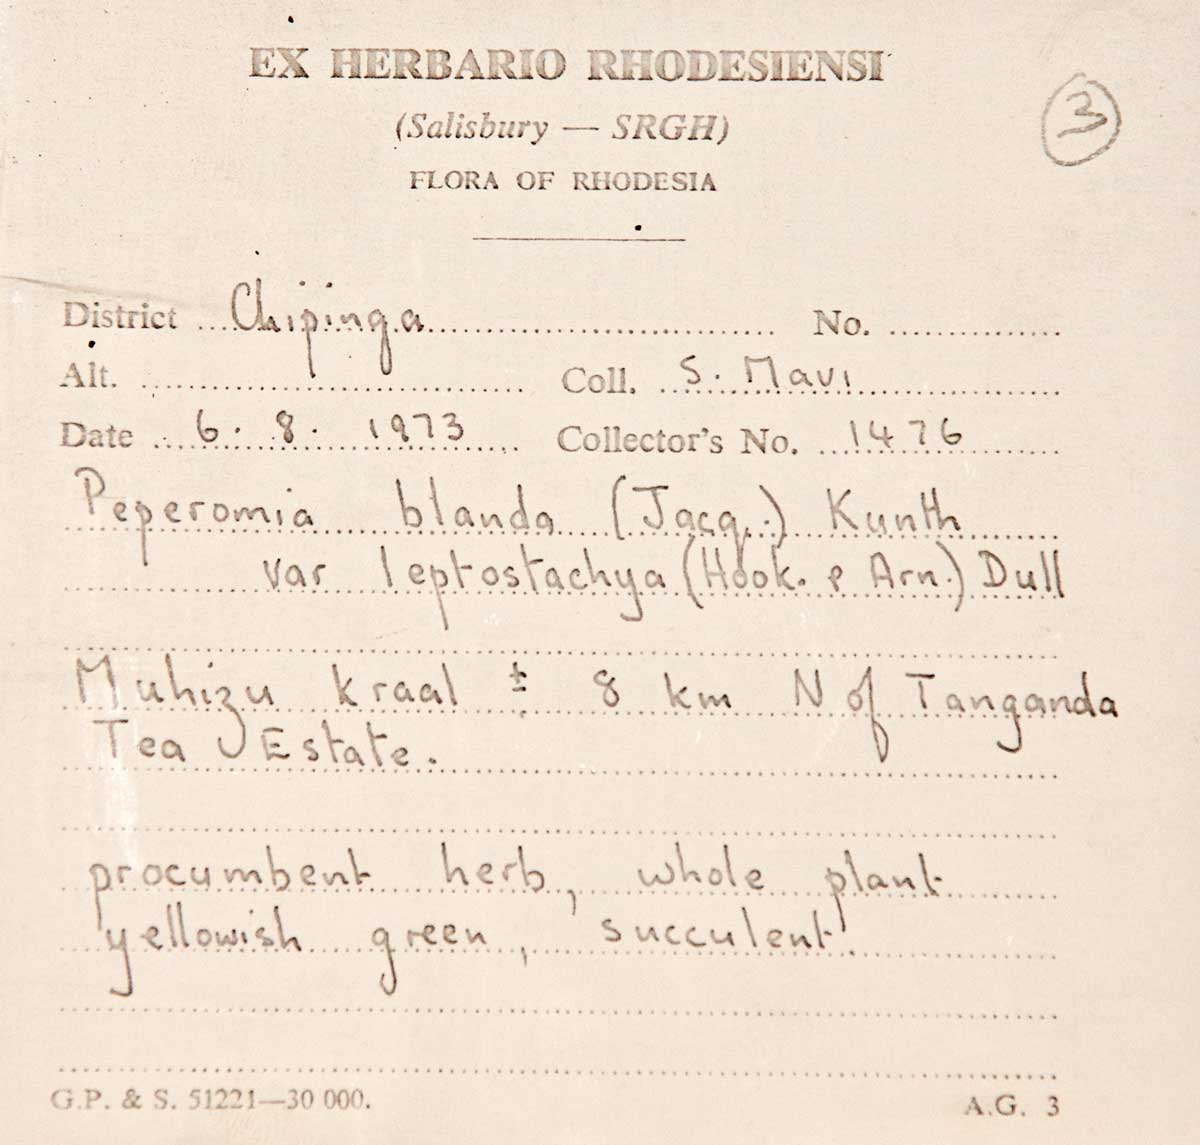 EX HERBARIO RHODESIENSI
(Salisbury — SRGH)
3
FLORA OF RHODESIA
District Chipinga No.
Alt. Coll. S. Mavi
Date 6. 8. 1973 Collector's No. 1476
Peperomia blanda (Jacq.) Kunth
var leptostachya (Hook. & Arn.) Dull
Muhizu kraal ± 8 km N of Tanganda
Tea Estate.
procumbent herb, whole plant
yellowish green, succulent.
G.P. & S. 51221—30 000. A.G. 3